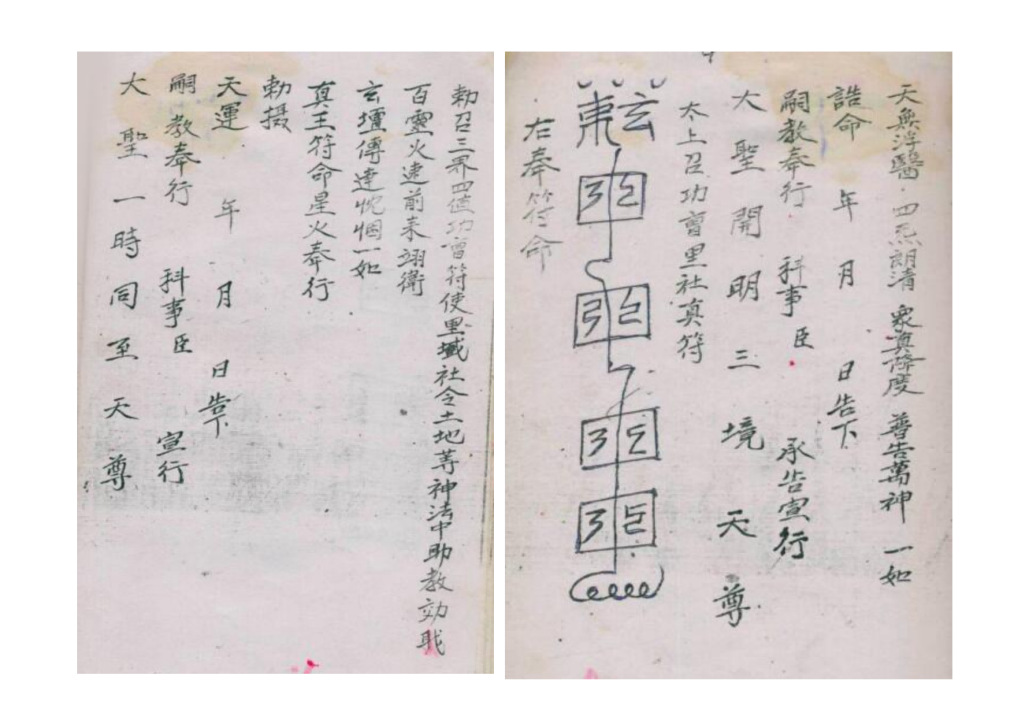 天無浮翳 四炁朗清 眾真降度 普告萬神 一如
誥命 年 月 日告下
嗣教奉行 科事臣 承告宣行
大聖開明三境天尊
太上召功曹里社真符
玄
右奉符命
勅召三界四值功曹符使里域社令土地等神法中助教効职
百靈火速前来翊衛
玄壇傳達忱悃一如
真王符命星火奉行
勅攝
天運 年 月 日告下
嗣教奉行 科事臣 宣行
大聖一時同至天尊